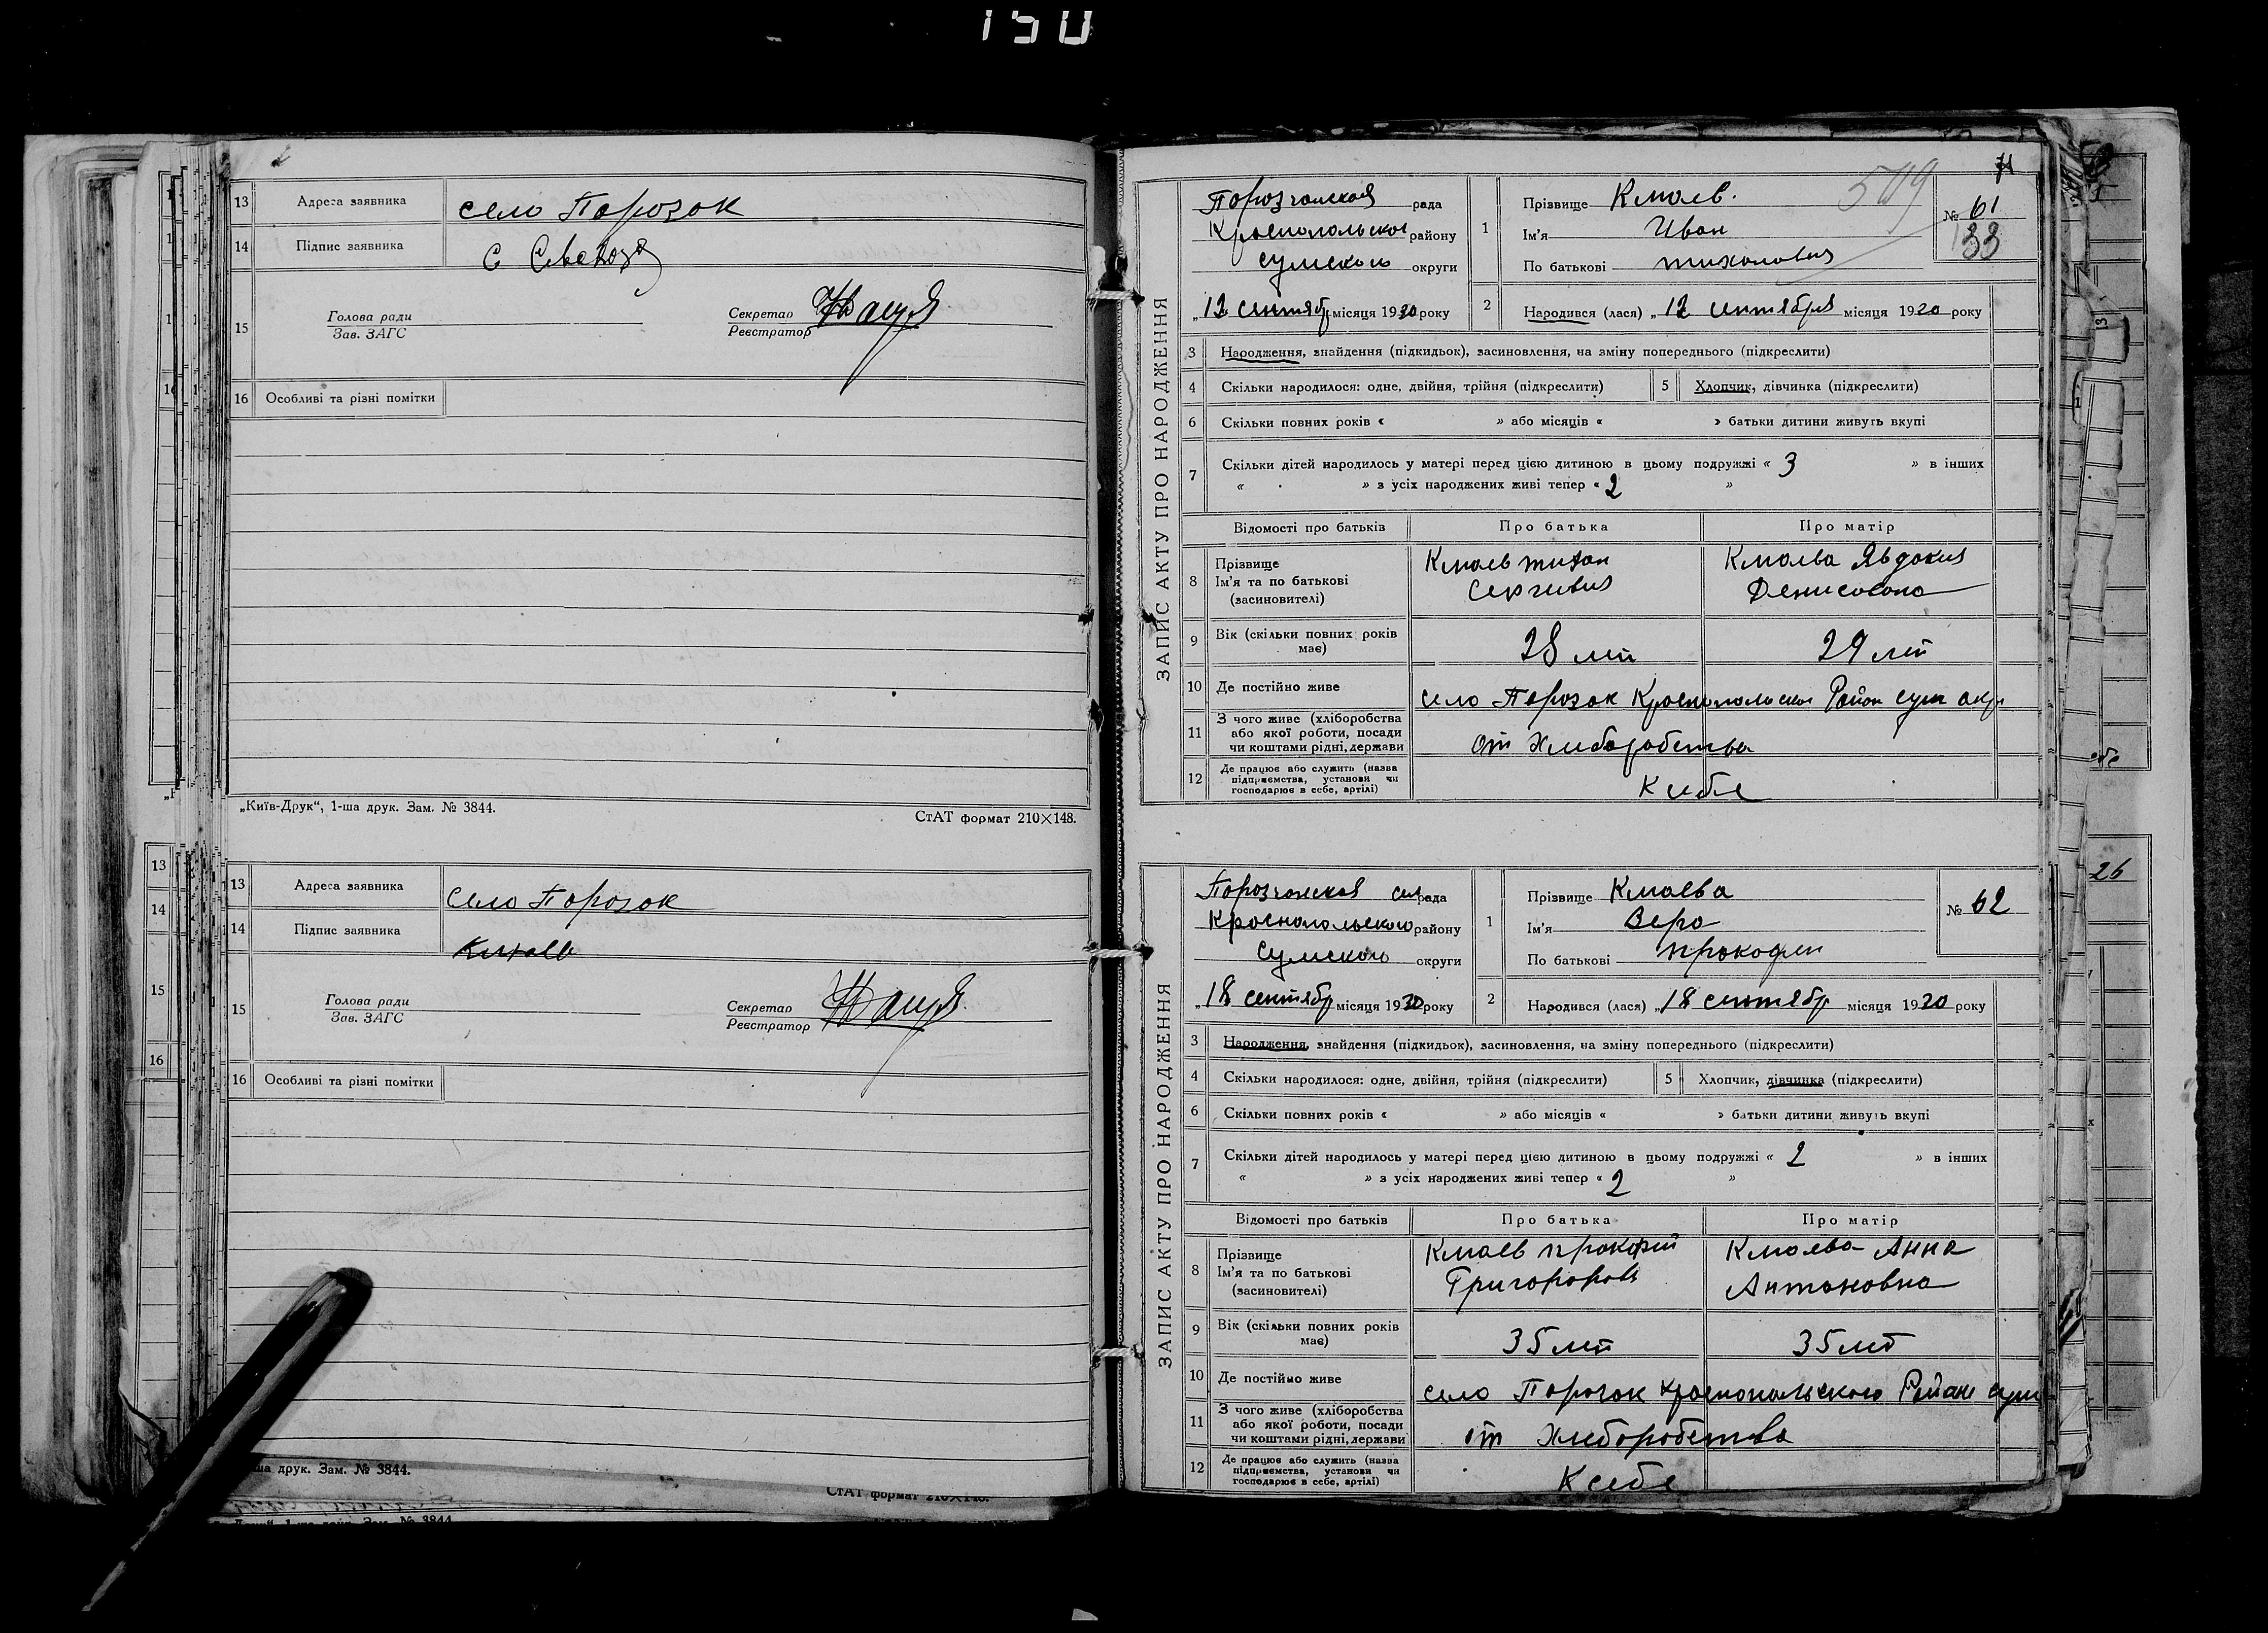 150
13 Адреса заявника село Порозок
14 Підпис заявника
15 Голова ради Секретар
Зав. ЗАГС Реєстратор
16 Особливі та різні помітки
„Київ-Друк“, 1-ша друк. Зам. № 3844. СтАТ формат 210×148.
13 Адреса заявника Село Порозок
14 Підпис заявника
15 Голова ради Секретар
Зав. ЗАГС Реєстратор
16 Особливі та різні помітки
ша друк. Зам. № 3844.
СтАТ формат 210×148.
ЗАПИС АКТУ ПРО НАРОДЖЕННЯ
рада
району
Сумского округи
„12 сентябр місяця 1930 року
1 Прізвище Кмаев
Ім'я Иван
По батькові
№ 61
133
509
2 Народився (лася) „12 сентября місяця 1930 року
3 Народження, знайдення (підкидьок), засиновлення, на зміну попереднього (підкреслити)
4 Скільки народилося: одне, двійня, трійня (підкреслити) 5 Хлопчик, дівчинка (підкреслити)
6 Скільки повних років « » або місяців « » батьки дитини живуть вкупі
7 Скільки дітей народилось у матері перед цією дитиною в цьому подружжі « 3 » в інших
« » з усіх народжених живі тепер « 2 »
Відомості про батьків Про батька Про матір
8 Прізвище Кмаев Тихон Кмаева Явдокия
Ім'я та по батькові Сергеевич Денисовна
(засиновителі)
9 Вік (скільки повних років 28 лет 29 лет
має)
10 Де постійно живе село Порозок Район сум окр
11 З чого живе (хліборобства
або якої роботи, посади От Хлеборобства
чи коштами рідні, держави
12 Де працює або служить (назва
підприємства, установи чи
господарює в себе, артілі)
ЗАПИС АКТУ ПРО НАРОДЖЕННЯ
рада
Краснопольского району
Сумского округи
„18 сентябр місяця 1930 року
1 Прізвище Кмаева
Ім'я Вера
По батькові Прокофеи
№ 62
2 Народився (лася) „18 сентябр місяця 1930 року
3 Народження, знайдення (підкидьок), засиновлення, на зміну попереднього (підкреслити)
4 Скільки народилося: одне, двійня, трійня (підкреслити) 5 Хлопчик, дівчинка (підкреслити)
6 Скільки повних років « » або місяців « » батьки дитини живуть вкупі
7 Скільки дітей народилось у матері перед цією дитиною в цьому подружжі « 2 » в інших
« » з усіх народжених живі тепер « 2 »
Відомості про батьків Про батька Про матір
8 Прізвище Кмаев Прокофий Кмаева Анна
Ім'я та по батькові Антоновна
(засиновителі)
9 Вік (скільки повних років 35 лет 35 лет
має)
10 Де постійно живе село Порозок Краснопольского
11 З чого живе (хліборобства
або якої роботи, посади от Хлеборобства
чи коштами рідні, держави
12 Де працює або служить (назва
підприємства, установи чи
господарює в себе, артілі) К себе
26